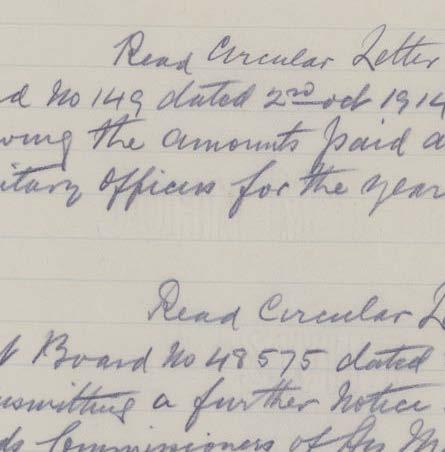 Read Circular Letter
d No 149 dated 2nd Oct 1914
wing the amounts paid a
itary Officers for the year
Read Circular Le
t Board No 48575 dated
nsmitting a further Notice
ds Commissioners of His M